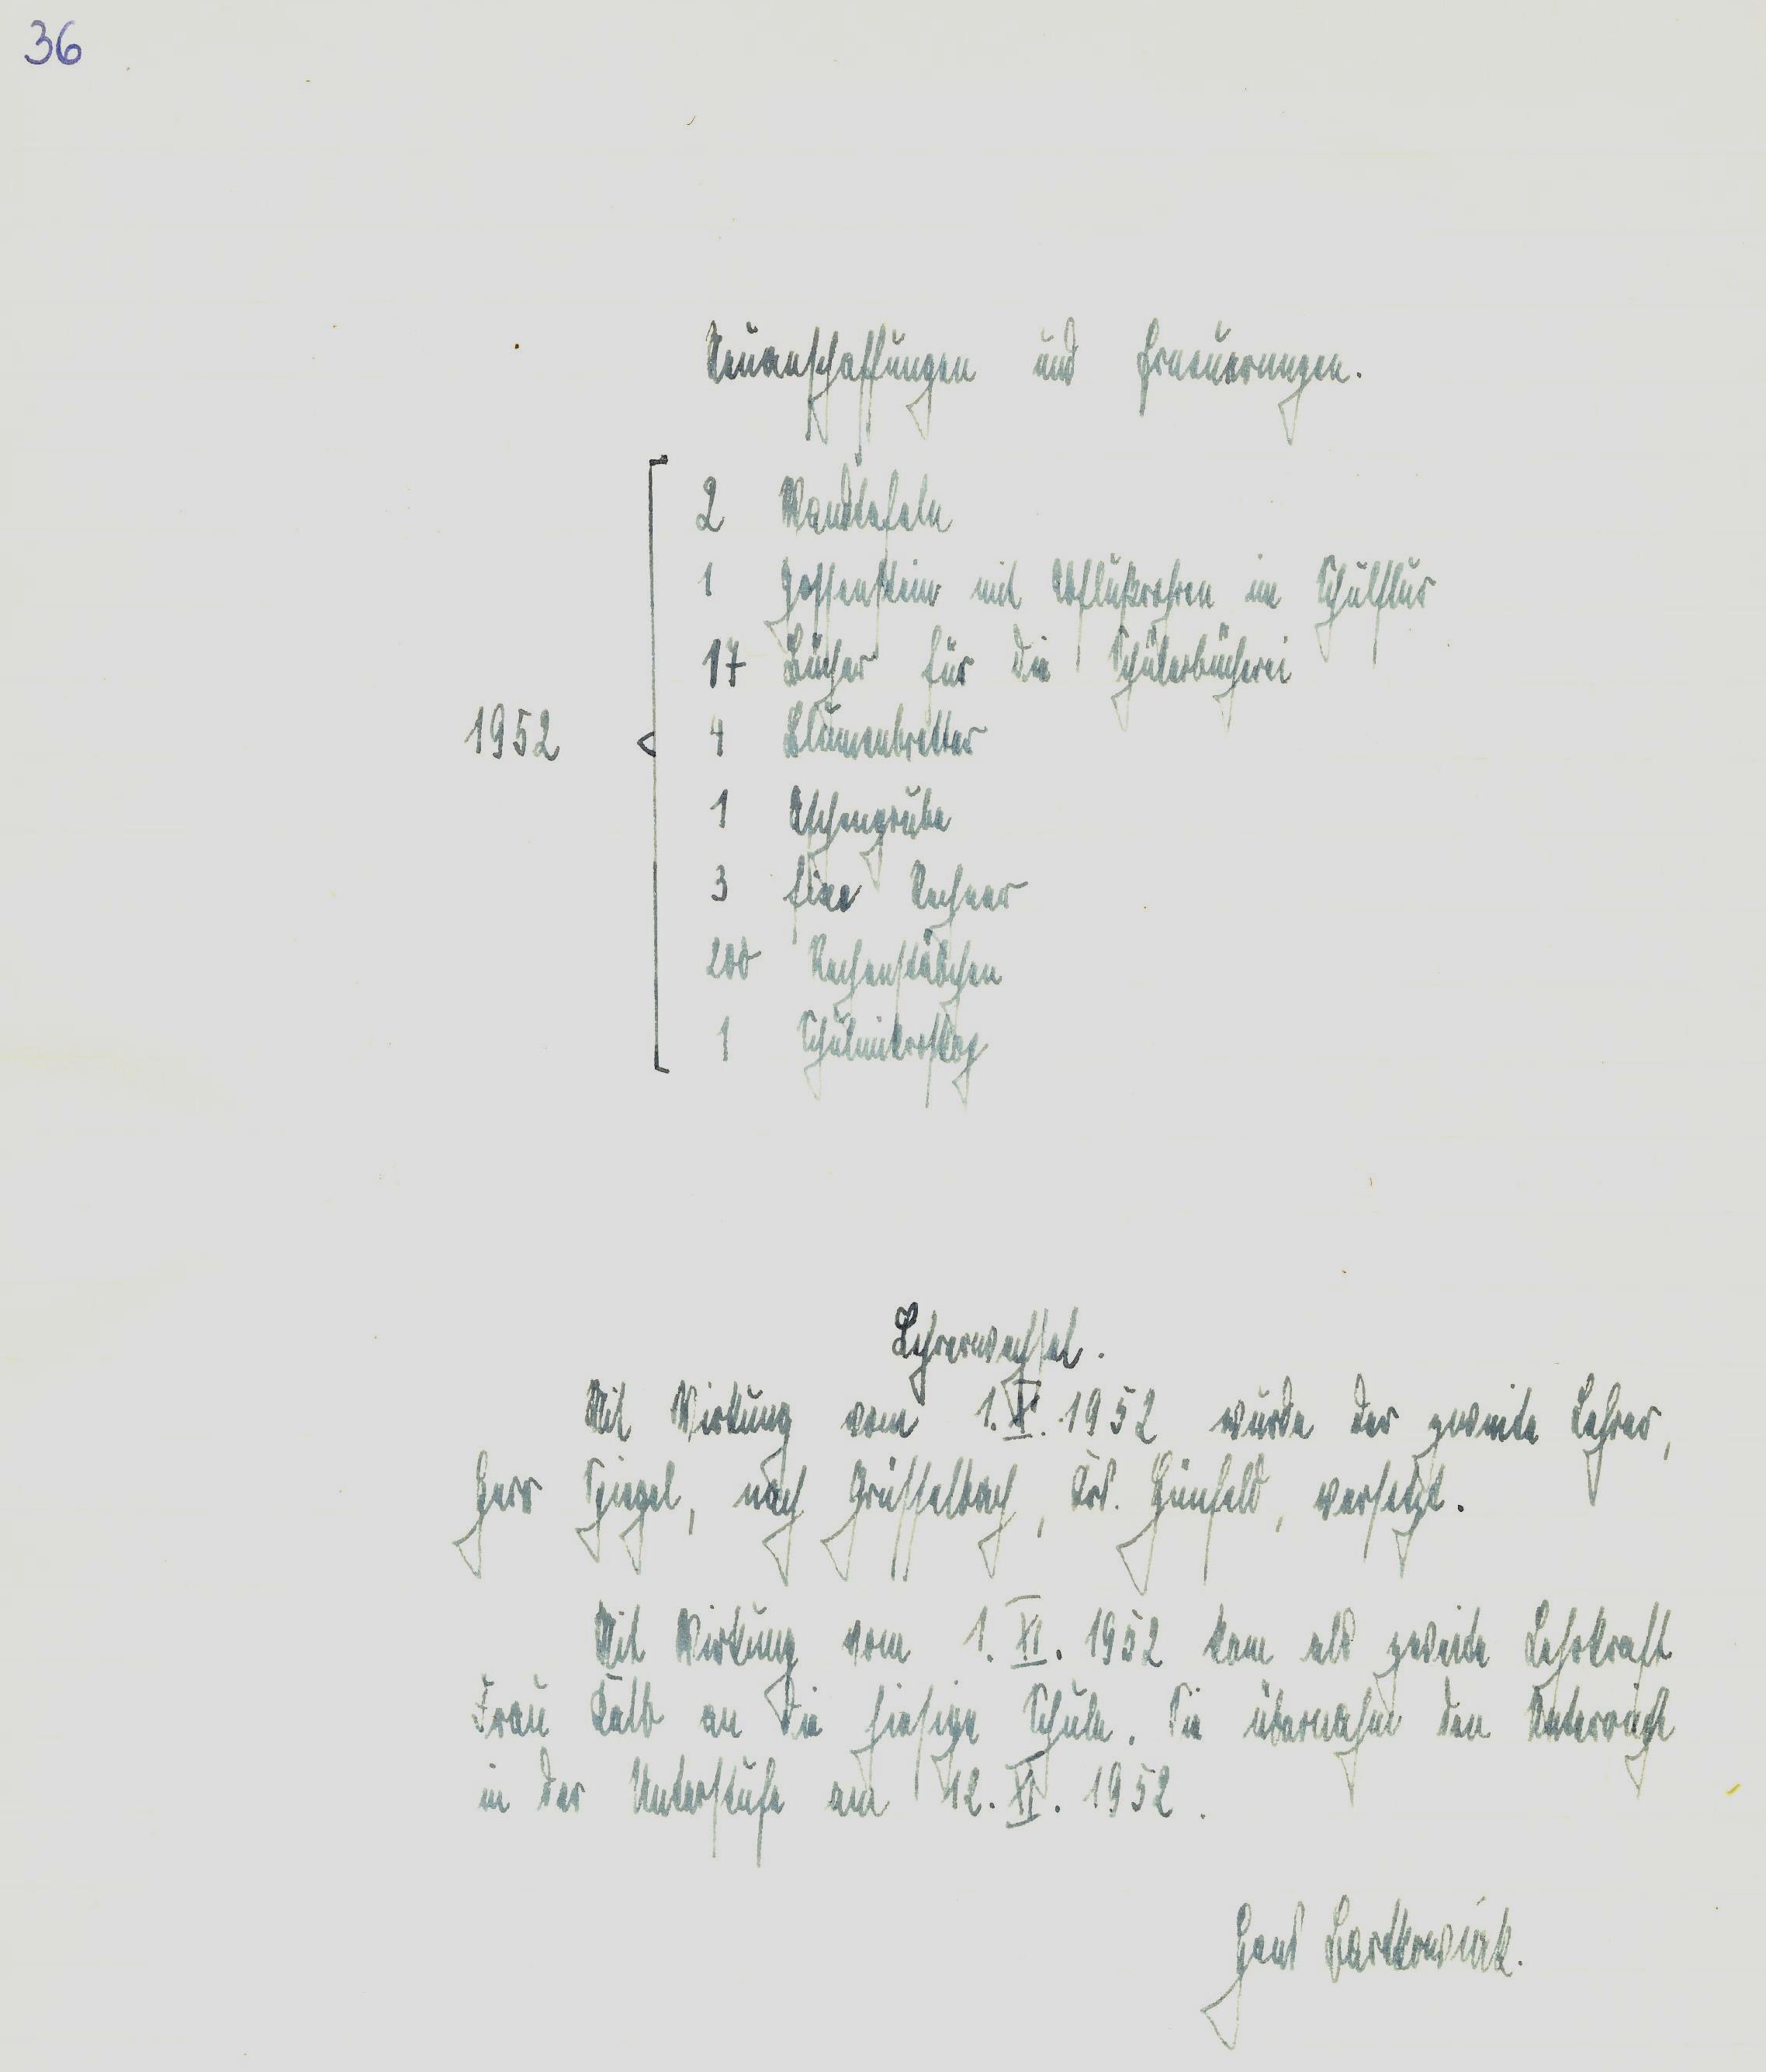 36
Neuanschaffungen und Erneuerungen.
2 Wandtafeln
1 Gossenstein mit Abflußrohren im Schulflur
17 Bücher für die Schülerbücherei
1952
4 Blumenbretter
1 Aschengrube
3 Rechner
200 Rechenstäbchen
1 Schulmikroskop
Lehrerwechsel.
Mit Wirkung vom 1. X. 1952 wurde der zweite Lehrer,
Herr Spiegel, nach Grüsselbach, Krs. Hünfeld, versetzt.
Mit Wirkung vom 1. XI. 1952 kam als zweite Lehrkraft
Frau Kalb an die hiesige Schule. Sie übernahm den Unterricht
in der Unterstufe am 12. XI. 1952.
Hans Bartkowiak.